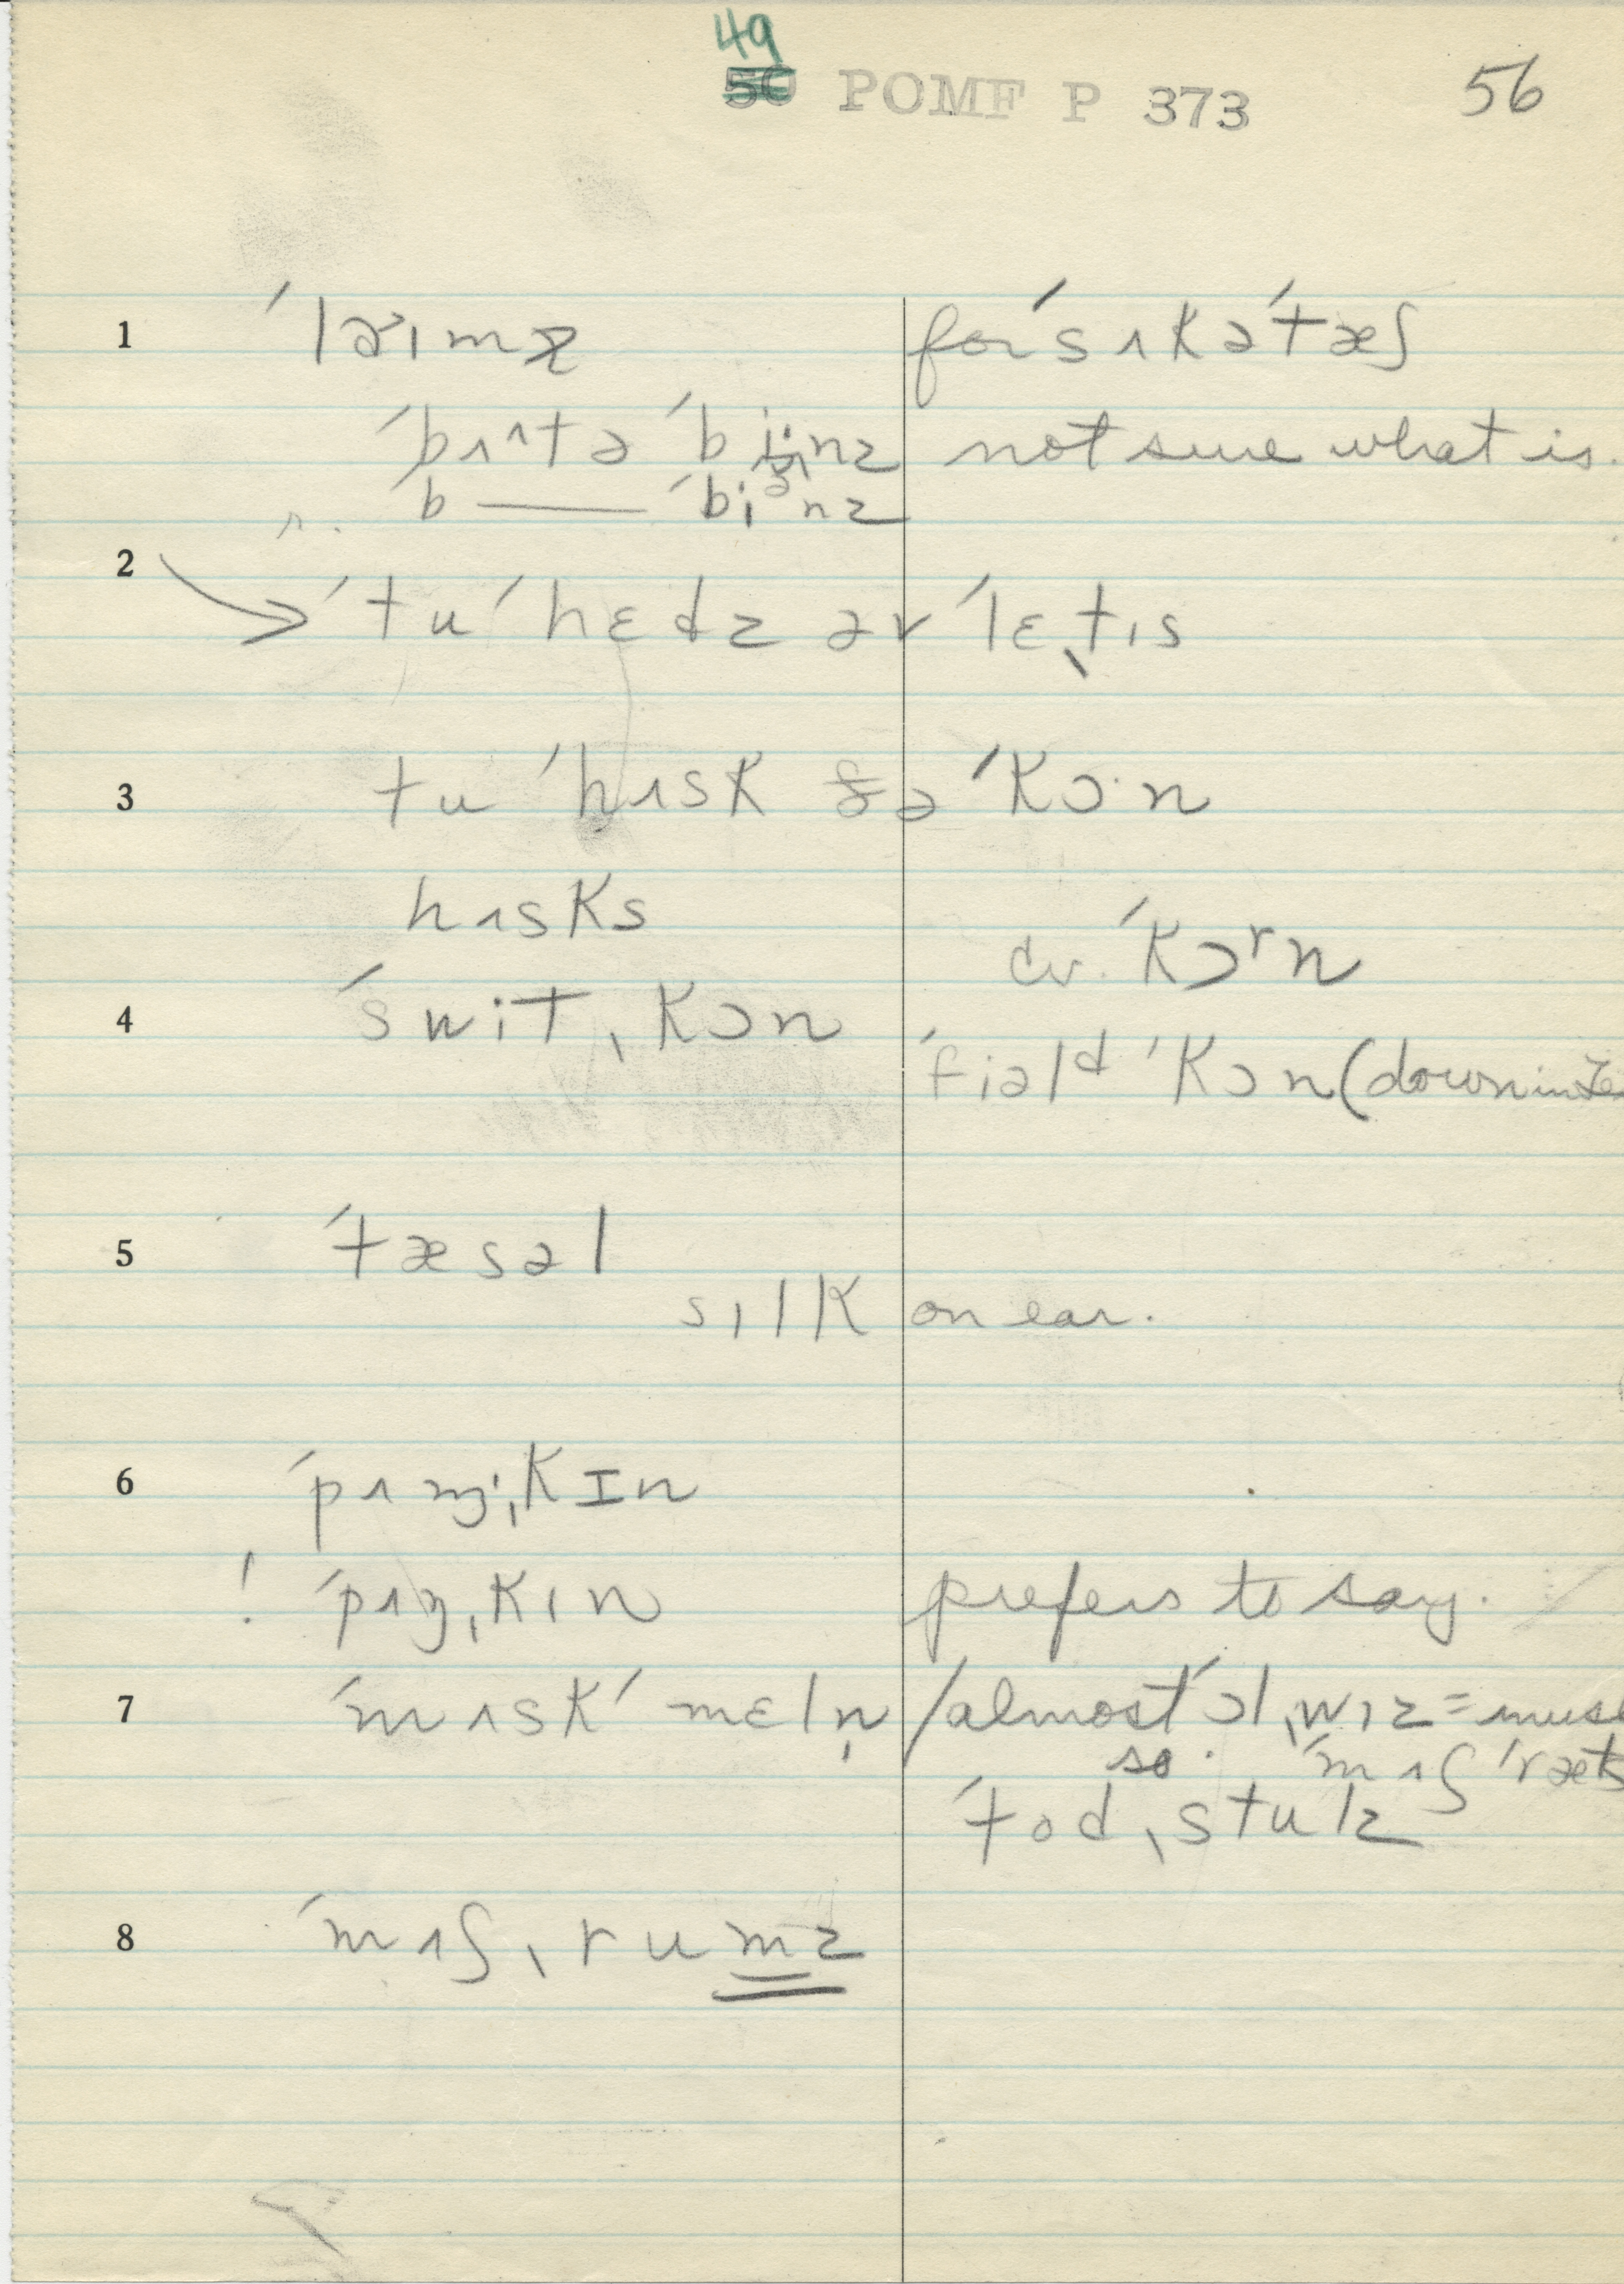 49
50 POMF P 373 56
1 ˈləˑɪmz for ˈsʌkəˈtæʃ
ˈbʌtə ˈbinz not sure what is.
ˈb — ˈbiᵊnz
2 → ˈtu ˈhɛdz əv ˈlɛt̬ɪs
3 tu ˈhʌsk ðə ˈkɔˑn
hʌsks
cv. ˈkɔʳn
4 ˈswit ˌkɔn
ˈfiəlᵈ ˈkɔn (down in
5 ˈtæsəl
sɪlk on ear.
6 ˈpʌmˌkɪn
! ˈpʌŋˌkɪn prefers to say.
7 ˈmʌsk ˈmɛlṇ / almost ˈɔlˌwɪz =
so. ˈmʌʃ ˈræts
ˈtodˌstulz
8 ˈmʌʃˌrumz